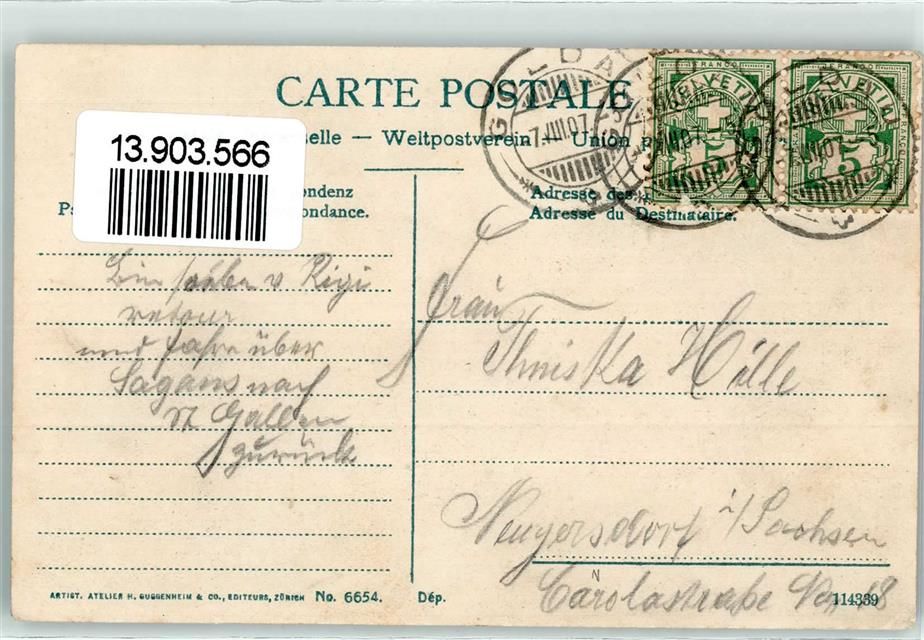 CARTE POSTALE
13.903.566
elle — Weltpostverein Union
ondenz
ondance.
Adresse des
Adresse du Destinataire.
GOLDAU
7.VIII.07
FRANCO
HELVETIA
5
FRANCO
HELVETIA
5
Bin soeben v Rigi
retour
und fahre über
Sagans nach
St Gallen
zurück
Frau
Hölle
Neugersdorf i/Sachsen
Carolastraße
ARTIST. ATELIER H. GUGGENHEIM & CO., EDITEURS, ZÜRICH No. 6654. Dép.
N
114339